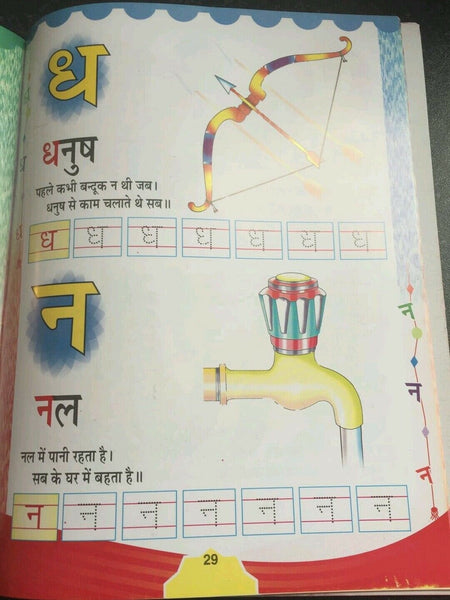 ध
धनुष
पहले कभी बन्दूक न थी जब।
धनुष से काम चलाते थे सब॥
ध ध ध ध ध ध ध
न
नल
नल में पानी रहता है।
सब के घर में बहता है॥
न न न न न न न
न
न
न
29